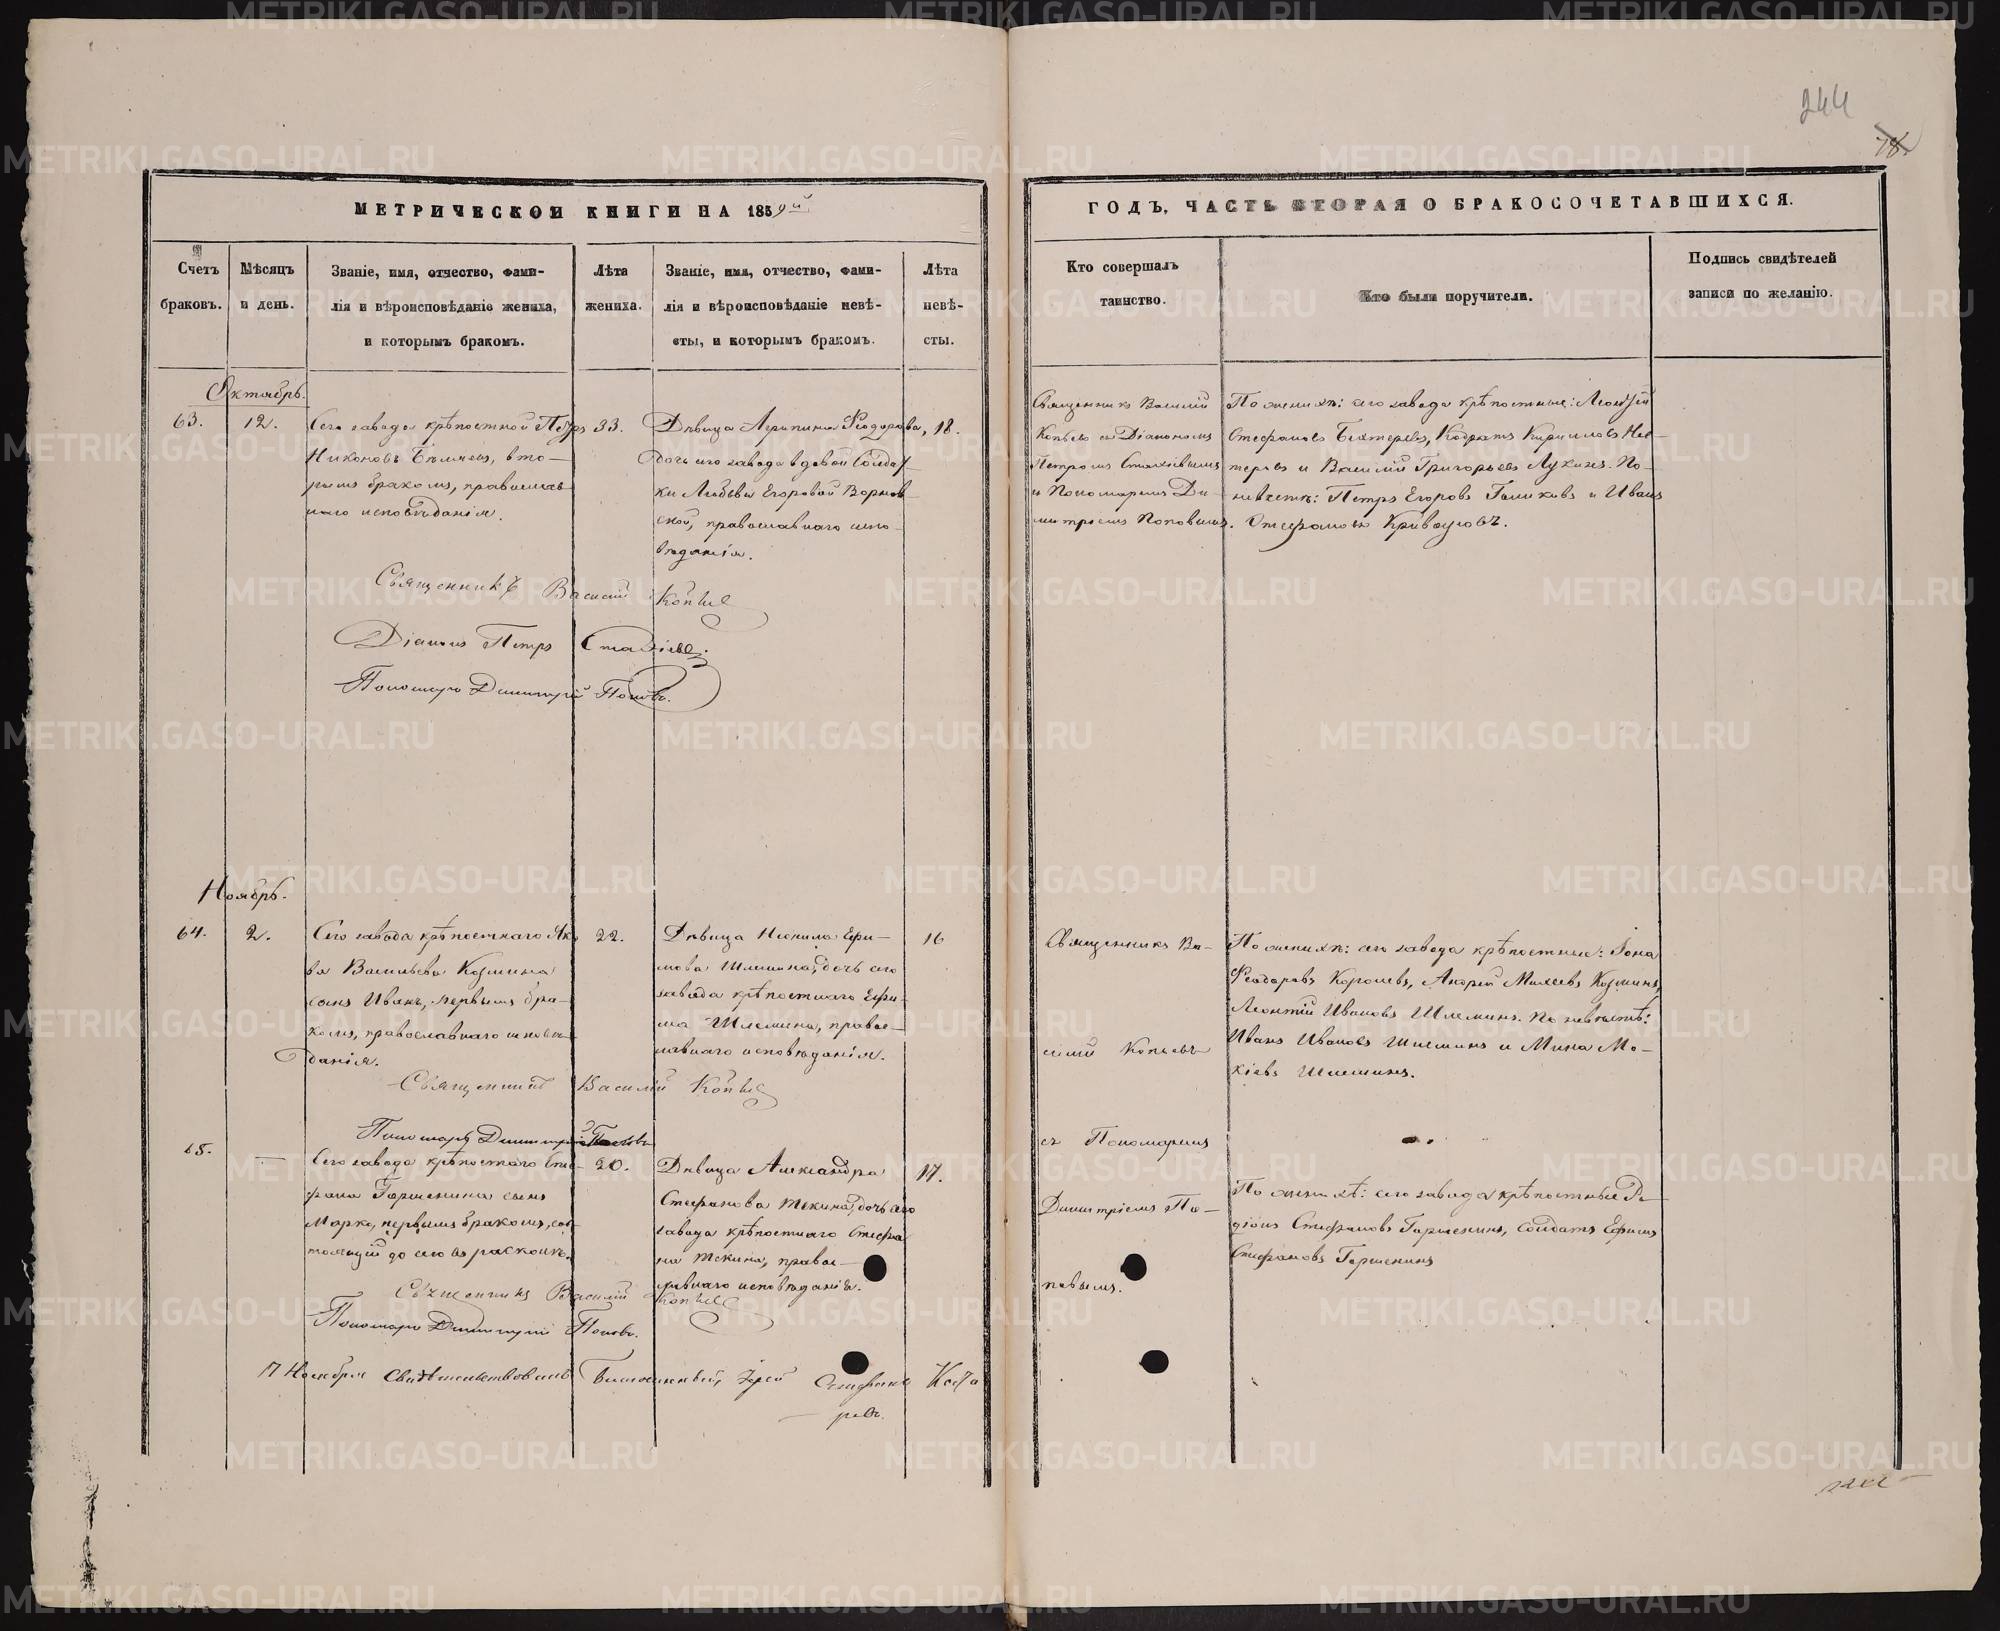 244
18.
МЕТРИЧЕСКОИ КНИГИ НА 1859й
ГОДЪ, ЧАСТЬ ВТОРАЯ О БРАКОСОЧЕТАВШИХСЯ.
Счетъ браковъ.
Мѣсяцъ и день.
Званіе, имя, отчество, фами-
лія и вѣроисповѣданіе жениха,
и которымъ бракомъ.
Лѣта жениха.
Званіе, имя, отчество, фами-
лія и вѣроисповѣданіе невѣ-
сты, и которымъ бракомъ.
Лѣта невѣ-
сты.
Кто совершалъ
таинство.
Кто были поручители.
Подпись свидѣтелей
записи по желанію.
Октябрь.
63.
12.
Сего завода крѣпостной Петръ
Никоновъ Бѣляевъ, вто-
рымъ бракомъ, православ
наго исповѣданія.
33.
Дѣвица Агрипина Ѳеодорова,
дочь сего завода вдовой Солдат
ки Любви Егоровой
ской, православнаго испо-
вѣданія.
18.
Священникъ Василій
Копьевъ съ Діакономъ
Петромъ
и Пономаремъ Ди-
митріемъ Поповымъ.
По женихѣ: сего завода крѣпостные:
Стефановъ Бехтеревъ, Кодратъ Кирилловъ Нес-
теровъ и Василій Григорьевъ Лукинъ. По
невѣстѣ: Петръ Егоровъ Голиковъ и Иванъ
Стефановъ Кривоуговъ.
Священникъ Василій Копьев
Діаконъ Петръ
Пономарь Димитрій Поповъ.
Ноябрь.
64.
2.
Сего завода крѣпостнаго Яко
ва Васильева Козмина
сынъ Иванъ, первымъ бра-
комъ, православнаго исповѣ-
данія.
22.
Дѣвица Неонила Ефи-
мова Шлемина, дочь сего
завода крѣпостнаго Ефи-
ма Шлемина, право-
славнаго исповѣданія.
16
Священникъ Ва-
силій Копьевъ
съ Пономаремъ
Димитріемъ По-
повымъ.
По женихѣ: сего завода крѣпостные: Іона
Ѳеодоровъ Королевъ, Андрей Михеевъ Козминъ,
Леонтій Ивановъ Шлеминъ. По невѣстѣ:
Иванъ Ивановъ Шлеминъ и Мина Мо-
кіевъ Шлеминъ.
Священникъ Василій Копьев
Пономарь Димитрій Поповъ
65.
—
Сего завода крѣпостнаго Сте-
фана Горшенина сынъ
Марко, первымъ бракомъ, сос-
тоящій до сего въ расколѣ.
20.
Дѣвица Александра
Стефанова Текина, дочь сего
завода крѣпостнаго Стефа
на Текина, право-
славнаго исповѣданія.
17.
По женихѣ: сего завода крѣпостные Ро-
діонъ Стефановъ Горшенинъ, солдатъ Ефимъ
Стефановъ Горшенинъ
Священникъ Василій Копьев
Пономарь Димитрій Поповъ.
17 Ноября Свидѣтельствовалъ Благочинный, Іерей Стефанъ
METRIKI.GASO-URAL.RU